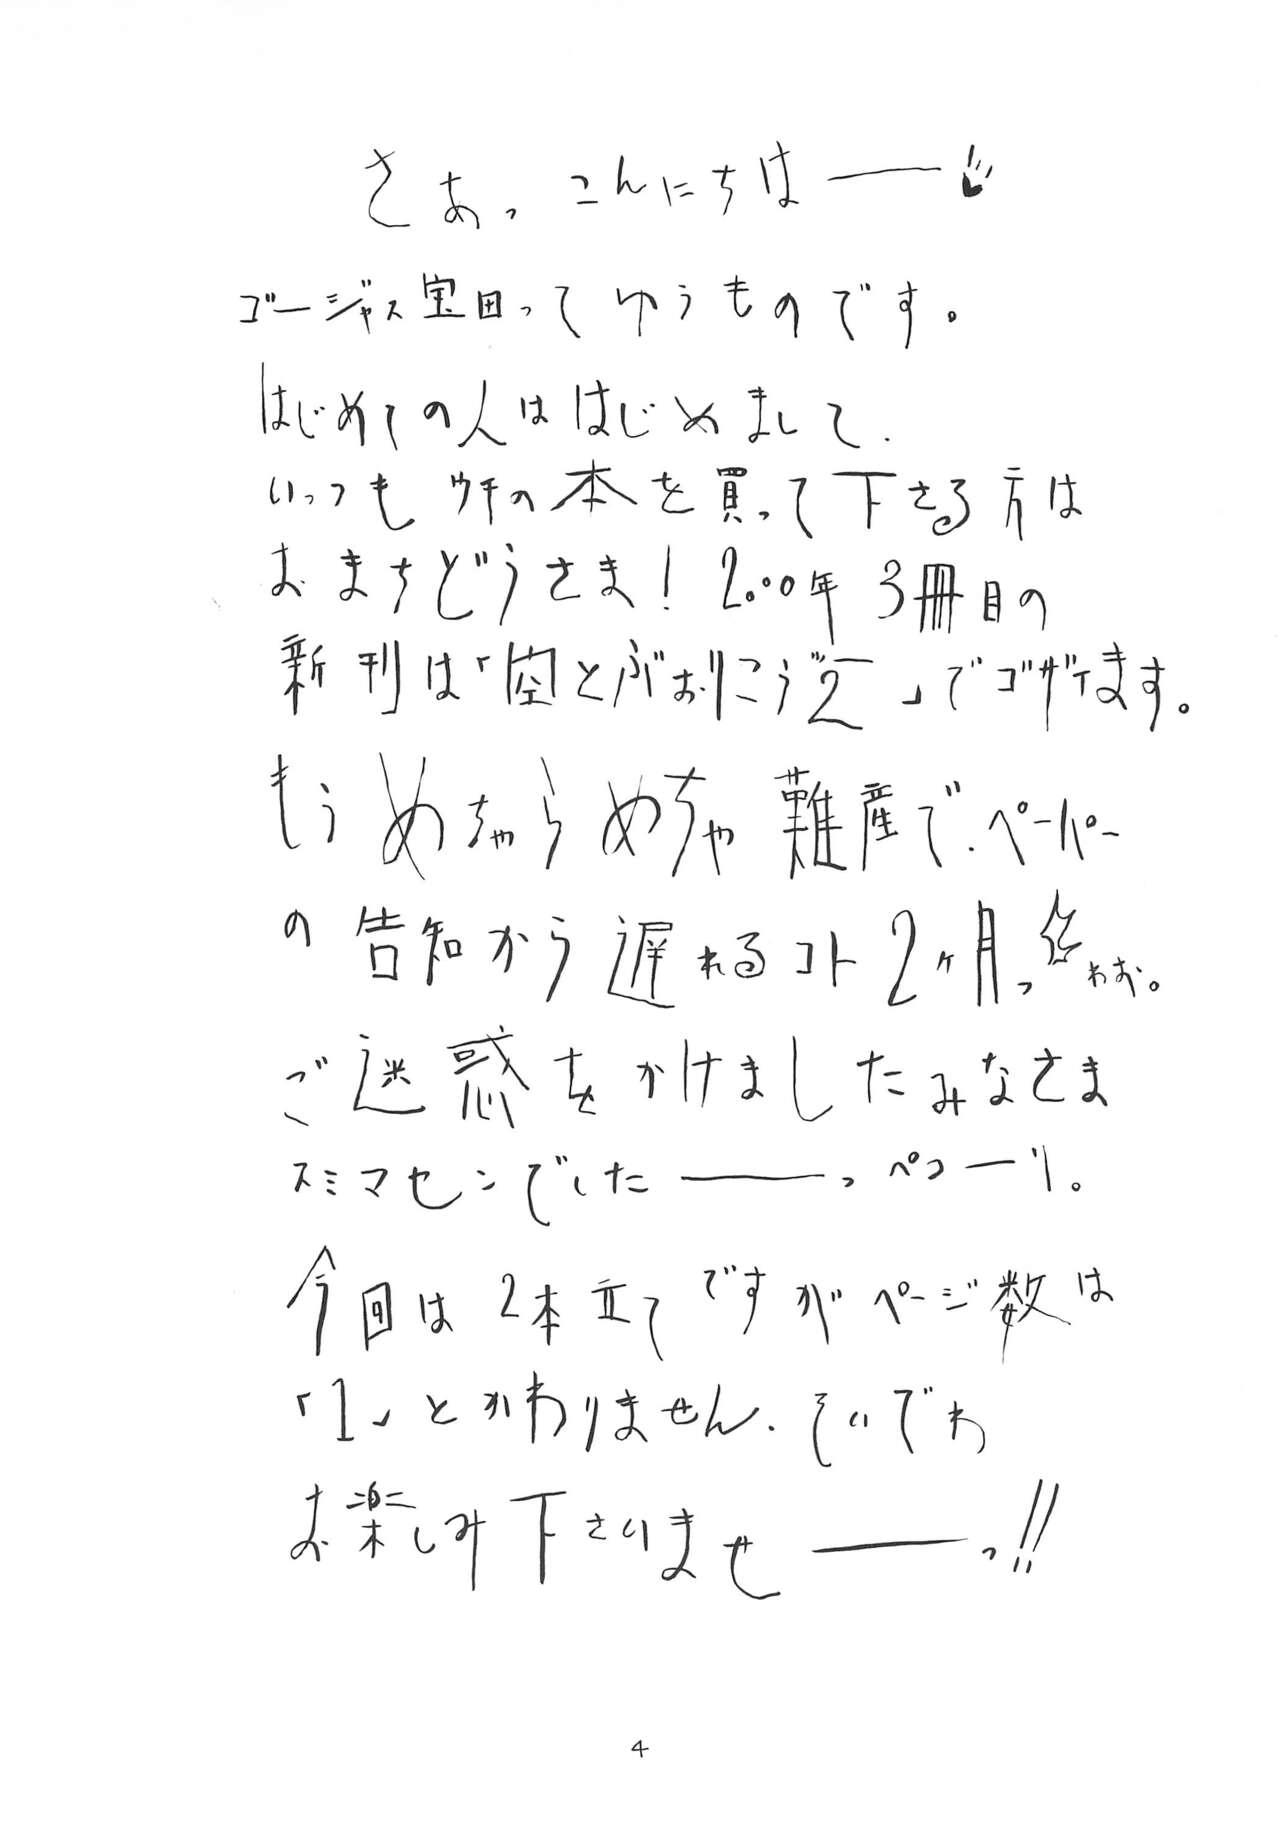 さぁっ こんにちはー♥
ゴージャス宝田ってゆうものです。
はじめての人ははじめまして.
いっつもウチの本を買って下さる方は
おまちどうさま! 2000年3冊目の
新刊は「空とぶおりこうズ2」でゴザイます。
もうめちゃらめちゃ難産で.ペーパー
の告知から遅れるコト2ヶ月っ わお。
ご迷惑をかけましたみなさま
スミマセンでしたーっ ペコーリ。
今回は2本立てですがページ数は
「1」とかわりません.そいでわ
お楽しみ下さいませーっ!!
4